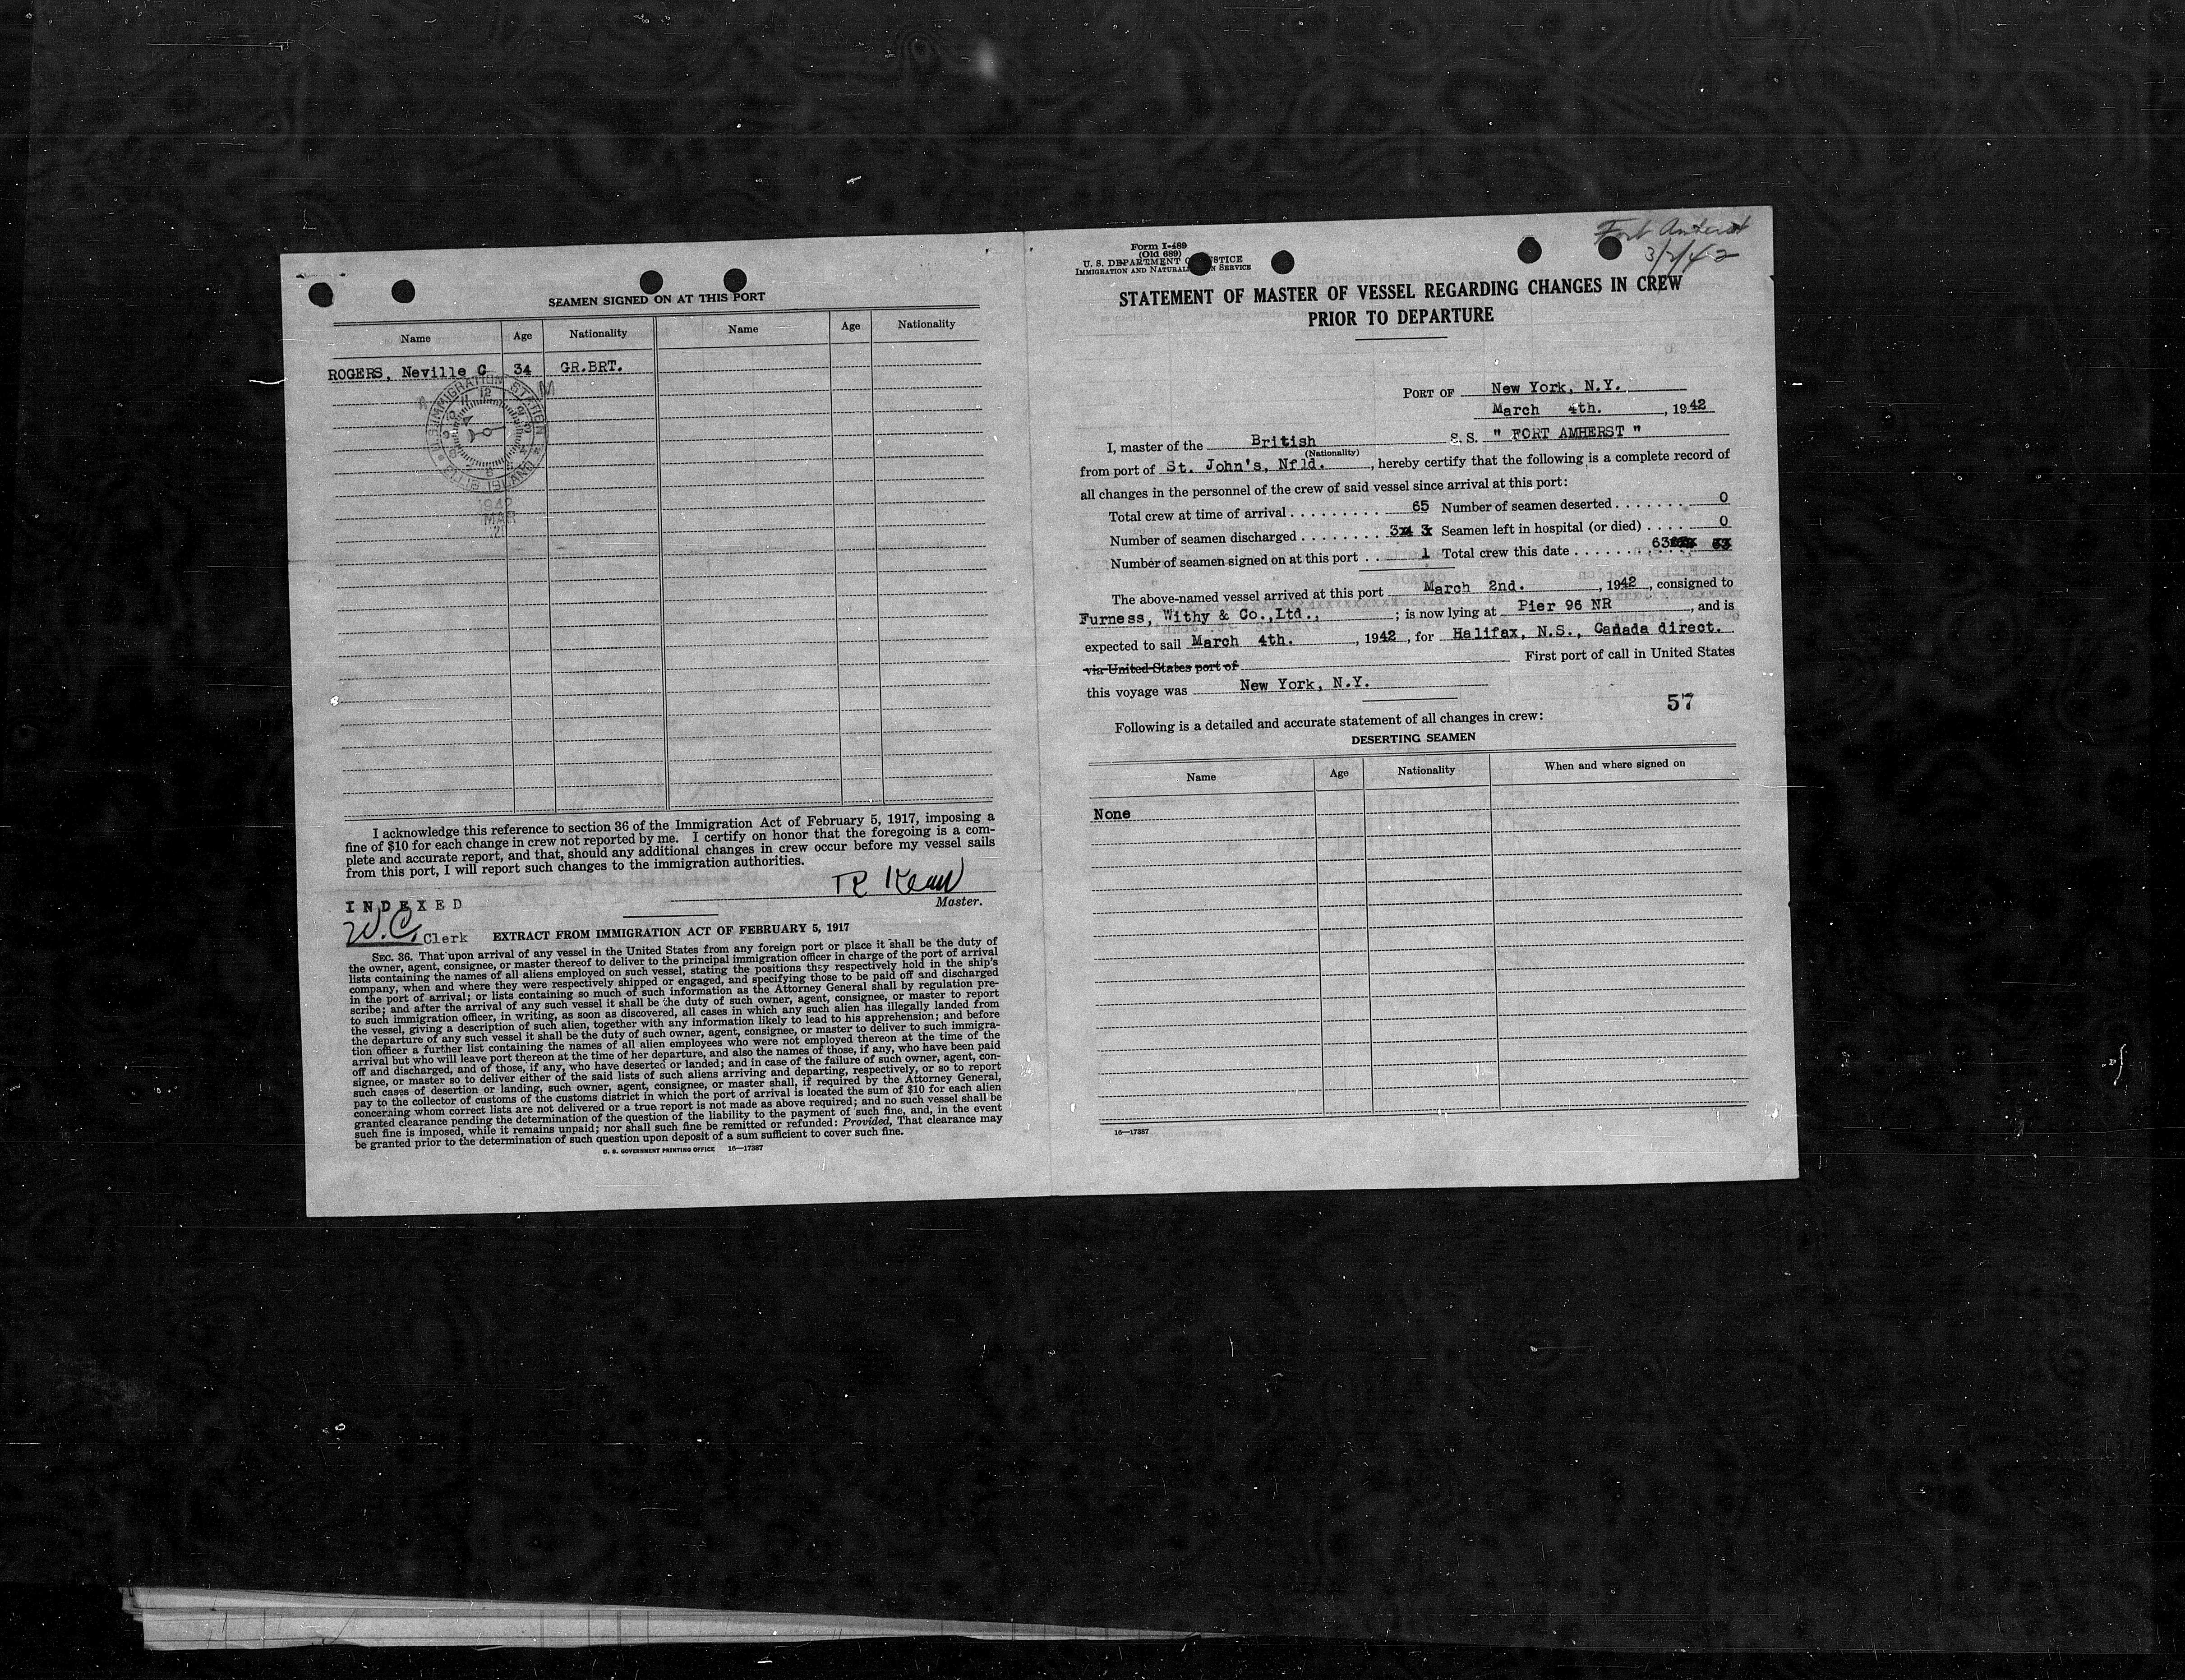 SEAMEN SIGNED ON AT THIS PORT
Name Age Nationality Name Age Nationality
ROGERS, Neville G 34 GR.BRT.
U.S. IMMIGRATION STATION
ELLIS ISLAND
1942
MAR
I acknowledge this reference to section 36 of the Immigration Act of February 5, 1917, imposing a
fine of $10 for each change in crew not reported by me. I certify on honor that the foregoing is a com-
plete and accurate report, and that, should any additional changes in crew occur before my vessel sails
from this port, I will report such changes to the immigration authorities.
Master.
INDEXED
W.C. Clerk
EXTRACT FROM IMMIGRATION ACT OF FEBRUARY 5, 1917
SEC. 36. That upon arrival of any vessel in the United States from any foreign port or place it shall be the duty of
the owner, agent, consignee, or master thereof to deliver to the principal immigration officer in charge of the port of arrival
lists containing the names of all aliens employed on such vessel, stating the positions they respectively hold in the ship's
company, when and where they were respectively shipped or engaged, and specifying those to be paid off and discharged
in the port of arrival; or lists containing so much of such information as the Attorney General shall by regulation pre-
scribe; and after the arrival of any such vessel it shall be the duty of such owner, agent, consignee, or master to report
to such immigration officer, in writing, as soon as discovered, all cases in which any such alien has illegally landed from
the vessel, giving a description of such alien, together with any information likely to lead to his apprehension; and before
the departure of any such vessel it shall be the duty of such owner, agent, consignee, or master to deliver to such immigra-
tion officer a further list containing the names of all alien employees who were not employed thereon at the time of the
arrival but who will leave port thereon at the time of her departure, and also the names of those, if any, who have been paid
off and discharged, and of those, if any, who have deserted or landed; and in case of the failure of such owner, agent, con-
signee, or master so to deliver either of the said lists of such aliens arriving and departing, respectively, or so to report
such cases of desertion or landing, such owner, agent, consignee, or master shall, if required by the Attorney General,
pay to the collector of customs of the customs district in which the port of arrival is located the sum of $10 for each alien
concerning whom correct lists are not delivered or a true report is not made as above required; and no such vessel shall be
granted clearance pending the determination of the question of the liability to the payment of such fine, and, in the event
such fine is imposed, while it remains unpaid; nor shall such fine be remitted or refunded: Provided, That clearance may
be granted prior to the determination of such question upon deposit of a sum sufficient to cover such fine.
U. S. GOVERNMENT PRINTING OFFICE 16—17387
Fort Amherst
3/2/42
Form I-489
(Old 689)
U. S. DEPARTMENT OF JUSTICE
IMMIGRATION AND NATURALIZATION SERVICE
STATEMENT OF MASTER OF VESSEL REGARDING CHANGES IN CREW
PRIOR TO DEPARTURE
PORT OF New York, N.Y.
March 4th. , 1942
I, master of the British S. S. " FORT AMHERST "
(Nationality)
from port of St. John's, Nfld. , hereby certify that the following is a complete record of
all changes in the personnel of the crew of said vessel since arrival at this port:
Total crew at time of arrival . . . . . . . . . 65 Number of seamen deserted . . . . . . . 0
Number of seamen discharged . . . . . . . . 3 Seamen left in hospital (or died) . . . . 0
Number of seamen signed on at this port . . 1 Total crew this date . . . . . . . 63
The above-named vessel arrived at this port March 2nd. , 1942 , consigned to
Furness, Withy & Co.,Ltd., ; is now lying at Pier 96 NR , and is
expected to sail March 4th. , 1942 , for Halifax, N.S., Canada direct.
via United States port of First port of call in United States
this voyage was New York, N.Y.
57
Following is a detailed and accurate statement of all changes in crew:
DESERTING SEAMEN
Name Age Nationality When and where signed on
None
16—17387